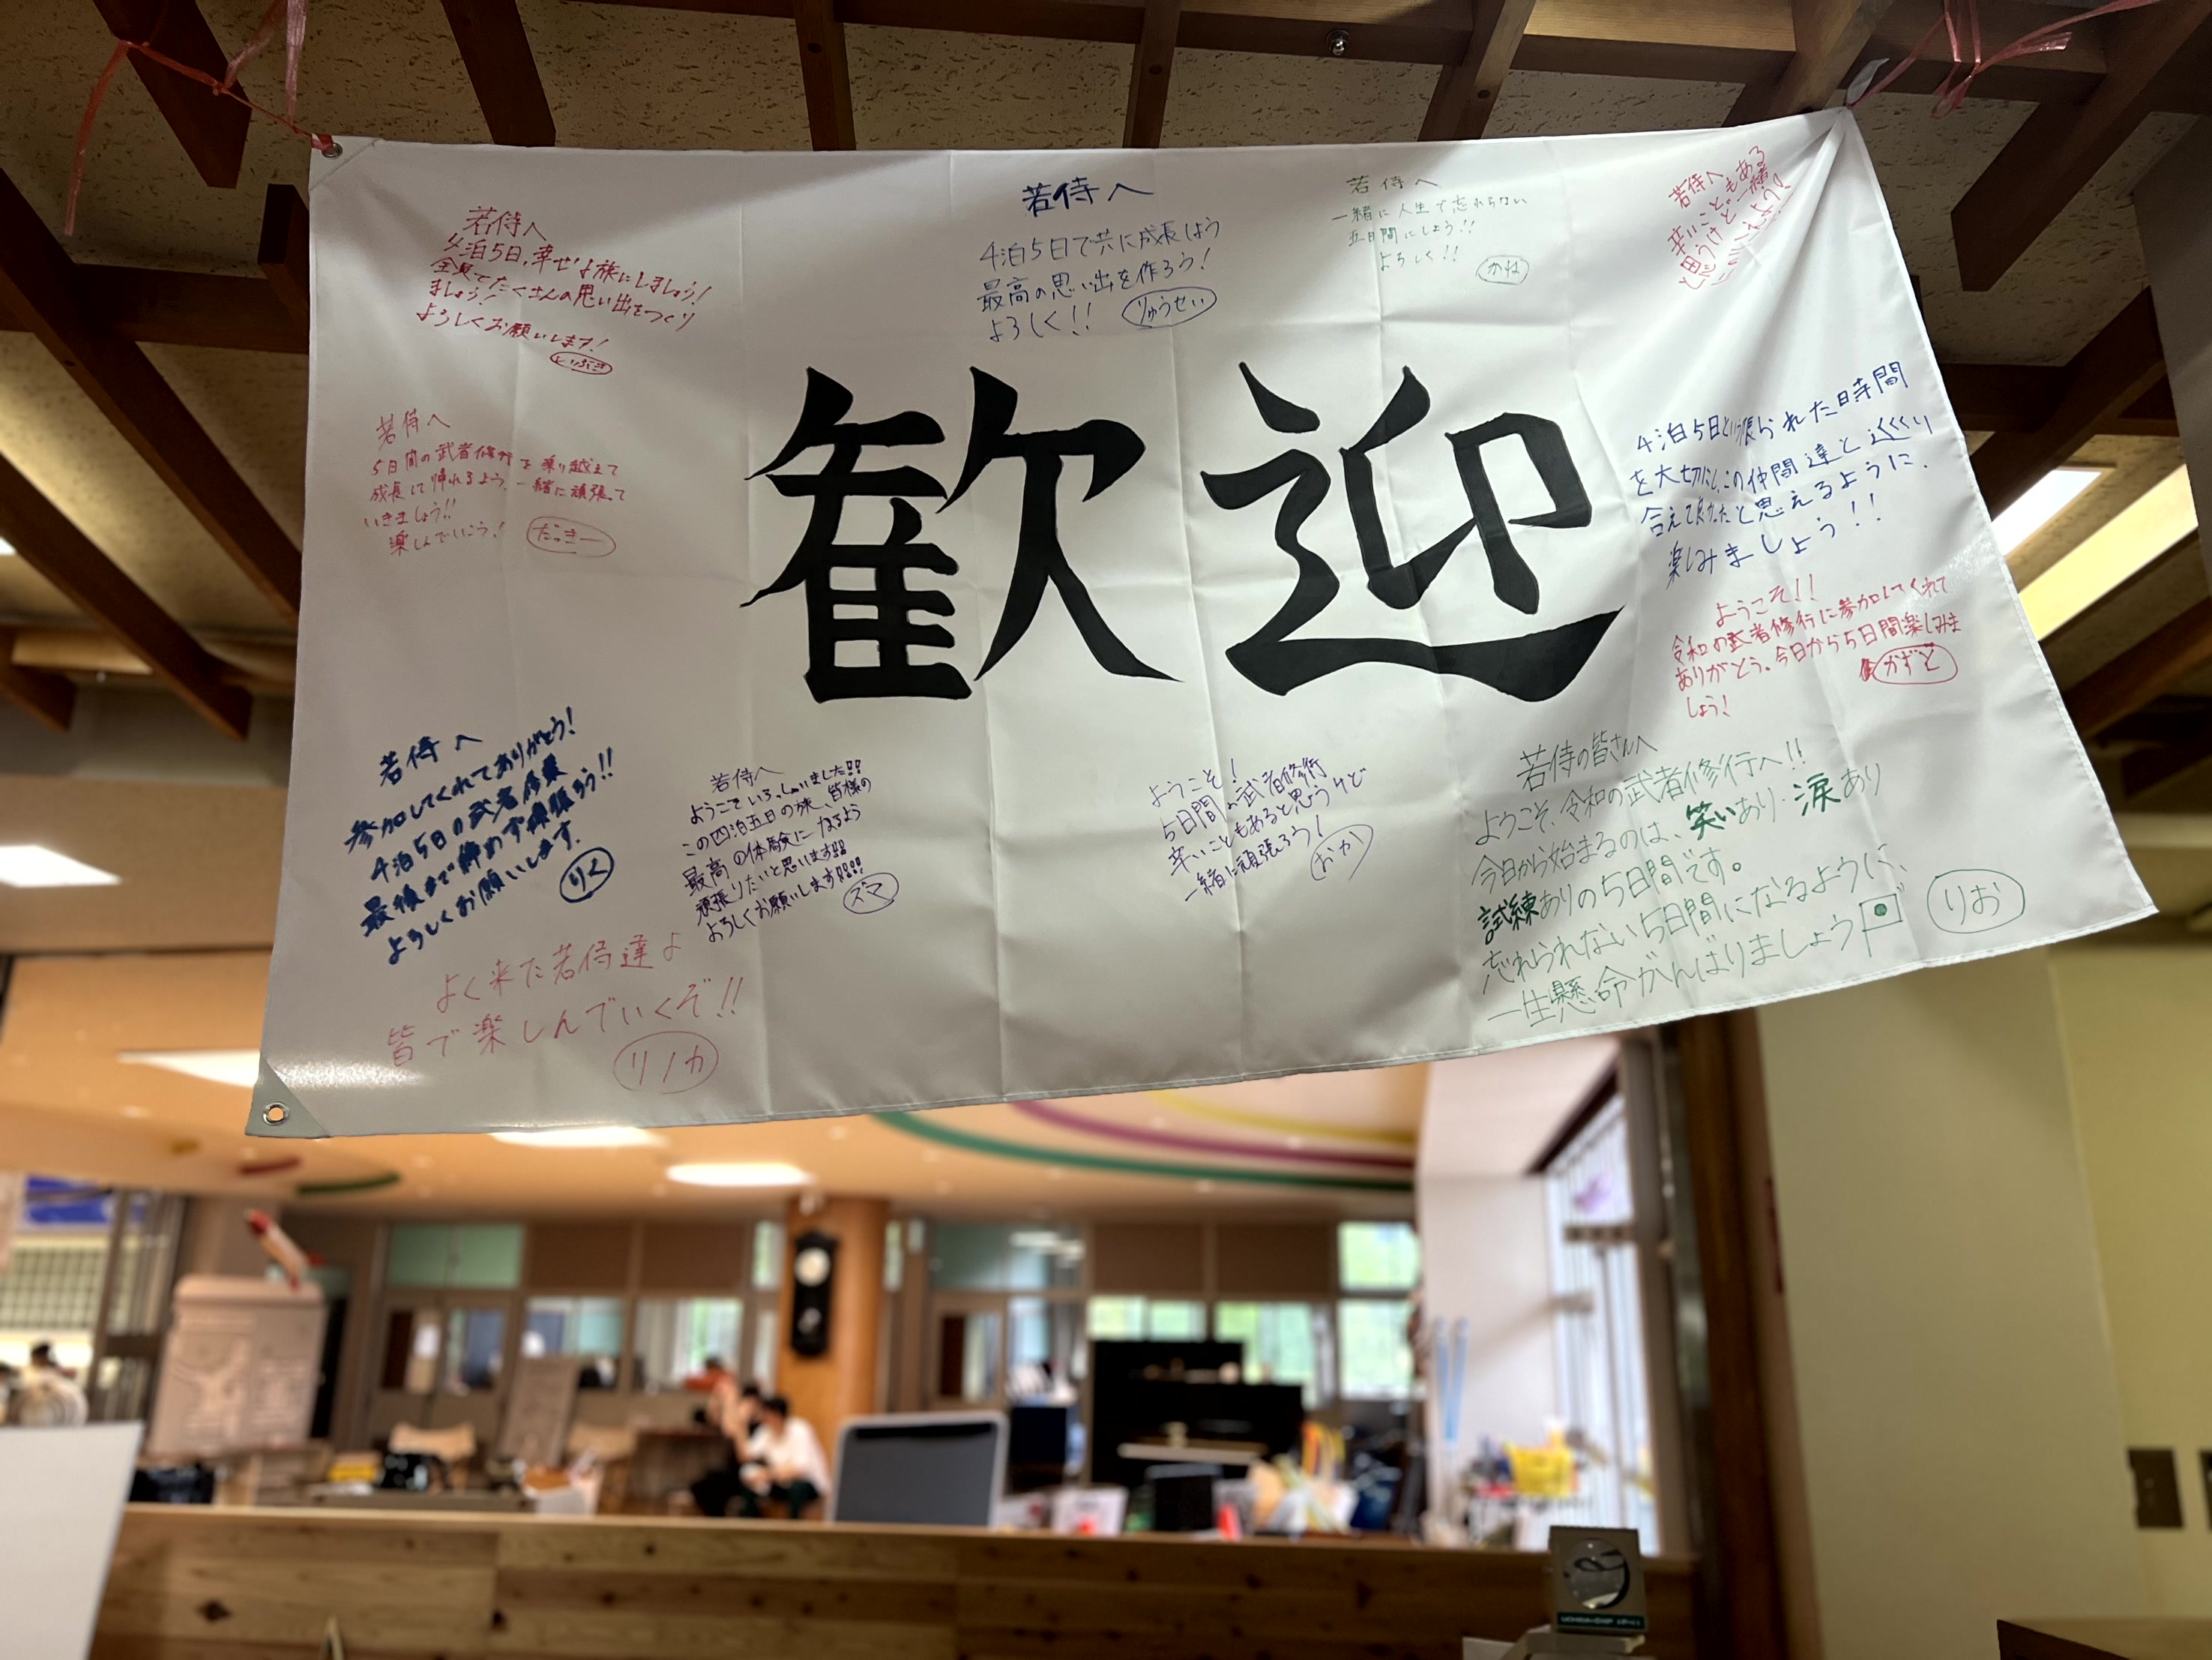 若侍へ
4泊5日、幸せな旅にしましょう!
全員でたくさんの思い出をつくり
ましょう!
よろしくお願いします!
若侍へ
4泊5日で共に成長しよう
最高の思い出を作ろう!
よろしく!!
りゅうせい
若侍へ
一緒に人生で忘れらない
五日間にしよう!!
よろしく!!
かね
若侍へ
辛いこともある
と思うけど一緒
歓迎
若侍へ
5日間の武者修行を乗り越えて
成長して帰れるよう、一緒に頑張って
いきましょう!!
楽しんでいこう!
たっきー
4泊5日という限られた時間
を大切にし、この仲間達と
合えて良かったと思えるように、
楽しみましょう!!
ようこそ!!
令和の武者修行に参加してくれて
ありがとう。今日から5日間楽しみま
しょう!
かずと
若侍へ
参加してくれてありがとう!
4泊5日の武者修業
最後まで諦めず頑張ろう!!
よろしくお願いします。
りく
若侍へ
ようこそいらっしゃいました!!
この四泊五日の旅、皆様の
最高の体験になるよう
頑張りたいと思います!!
よろしくお願いします!!!!
スマ
ようこそ!
5日間の武者修行
辛いこともあると思うけど
一緒に頑張ろう!
おか
若侍の皆さんへ
ようこそ、令和の武者修行へ!!
今日から始まるのは、笑いあり・涙あり
試練ありの5日間です。
忘れられない5日間になるように、
一生懸命がんばりましょう
りお
よく来た若侍達よ
皆で楽しんでいくぞ!!
リノカ